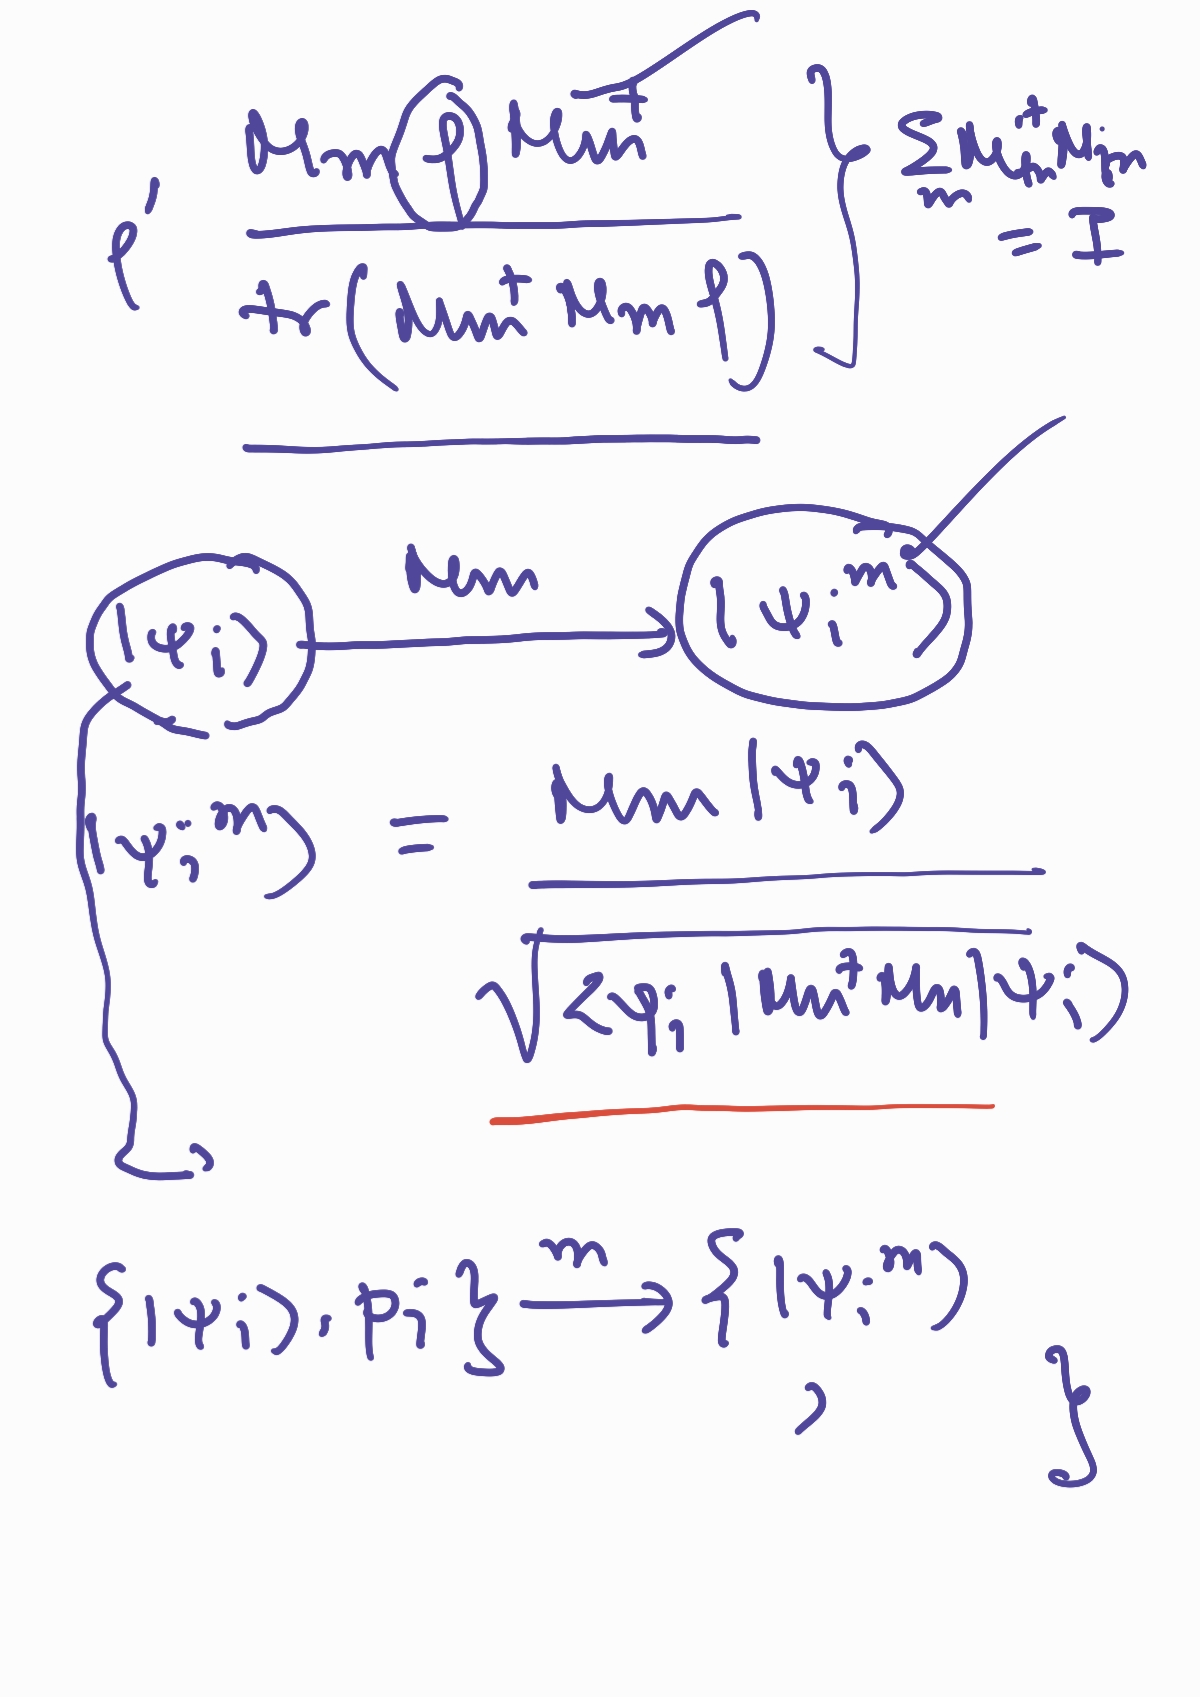 ρ' M_m ρ M_m^† } Σ_m M_m^† M_m
tr(M_m^† M_m ρ) = I
|ψ_i⟩ M_m → |ψ_i^m⟩
|ψ_i^m⟩ = M_m |ψ_i⟩
√⟨ψ_i | M_m^† M_m | ψ_i⟩
{|ψ_i⟩, p_i} m → {|ψ_i^m⟩
, }